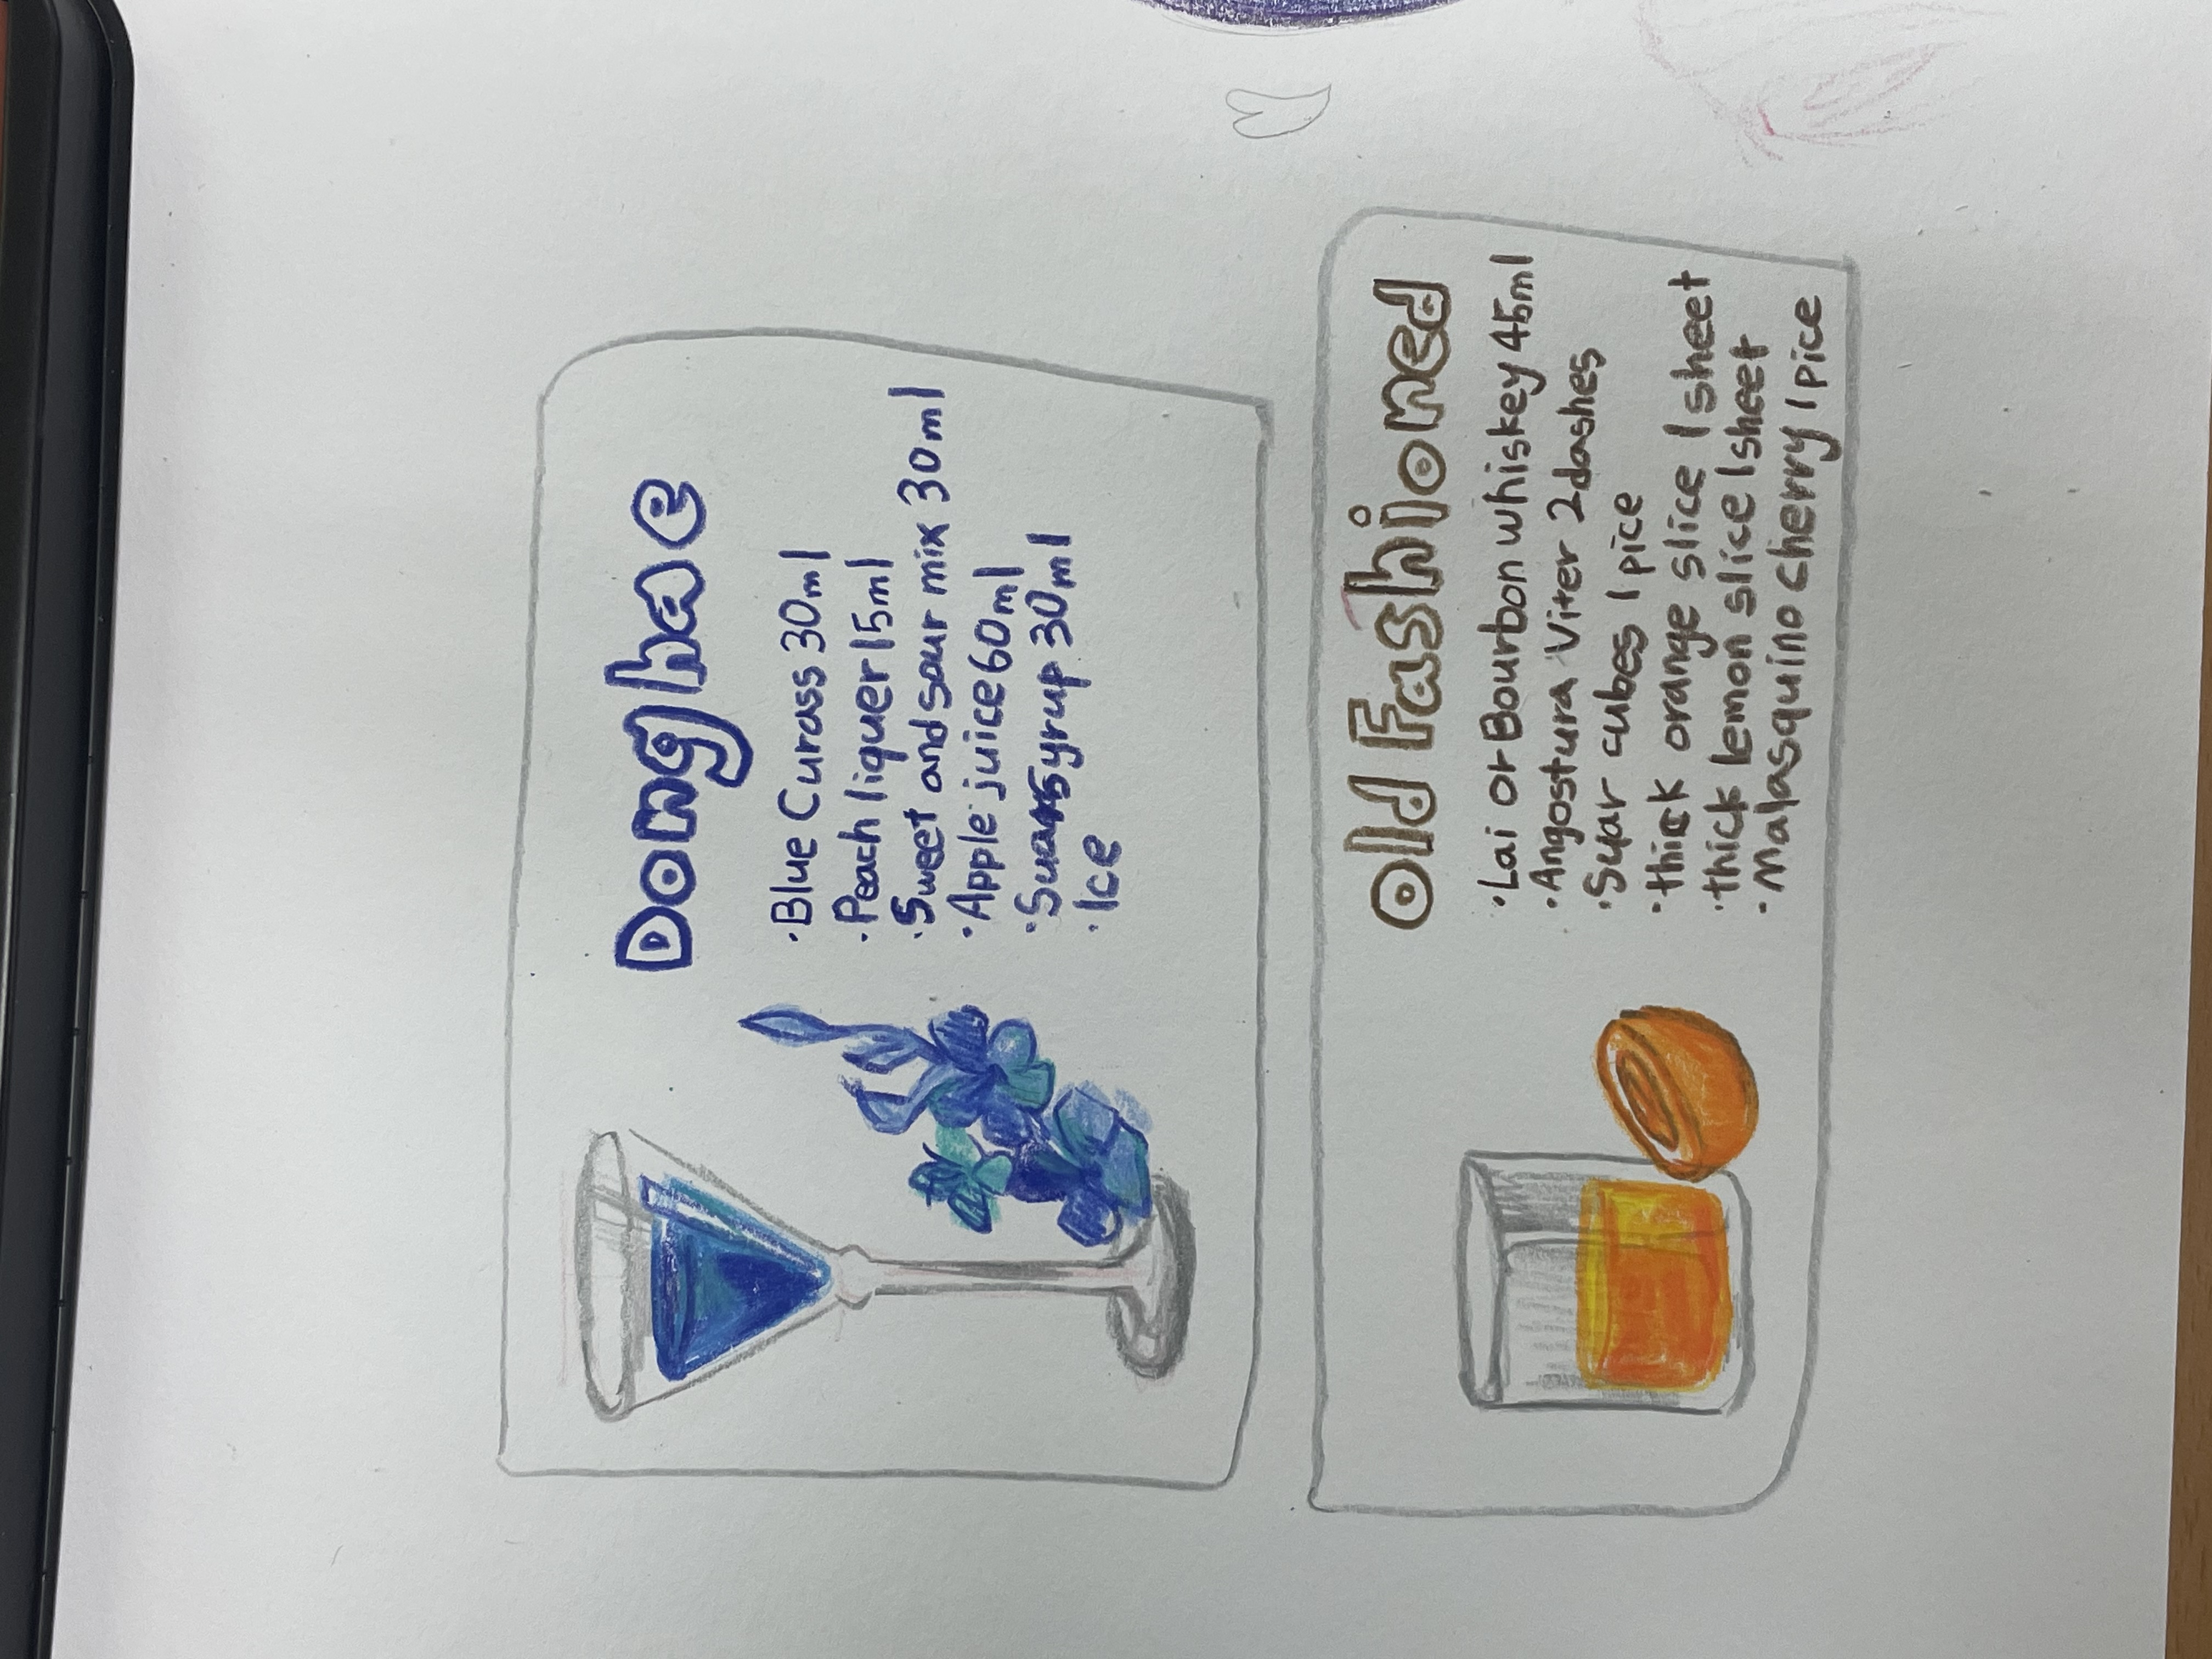 Donghae
· Blue Curass 30ml
· Peach liquer 15ml
· Sweet and sour mix 30ml
· Apple juice 60ml
· syrup 30ml
· Ice
Old Fashioned
· Lai or Bourbon whiskey 45ml
· Angostura Viter 2dashes
· Suar cubes 1 pice
· thick orange slice 1 sheet
· thick lemon slice 1 sheet
· Malasquino cherry 1 pice